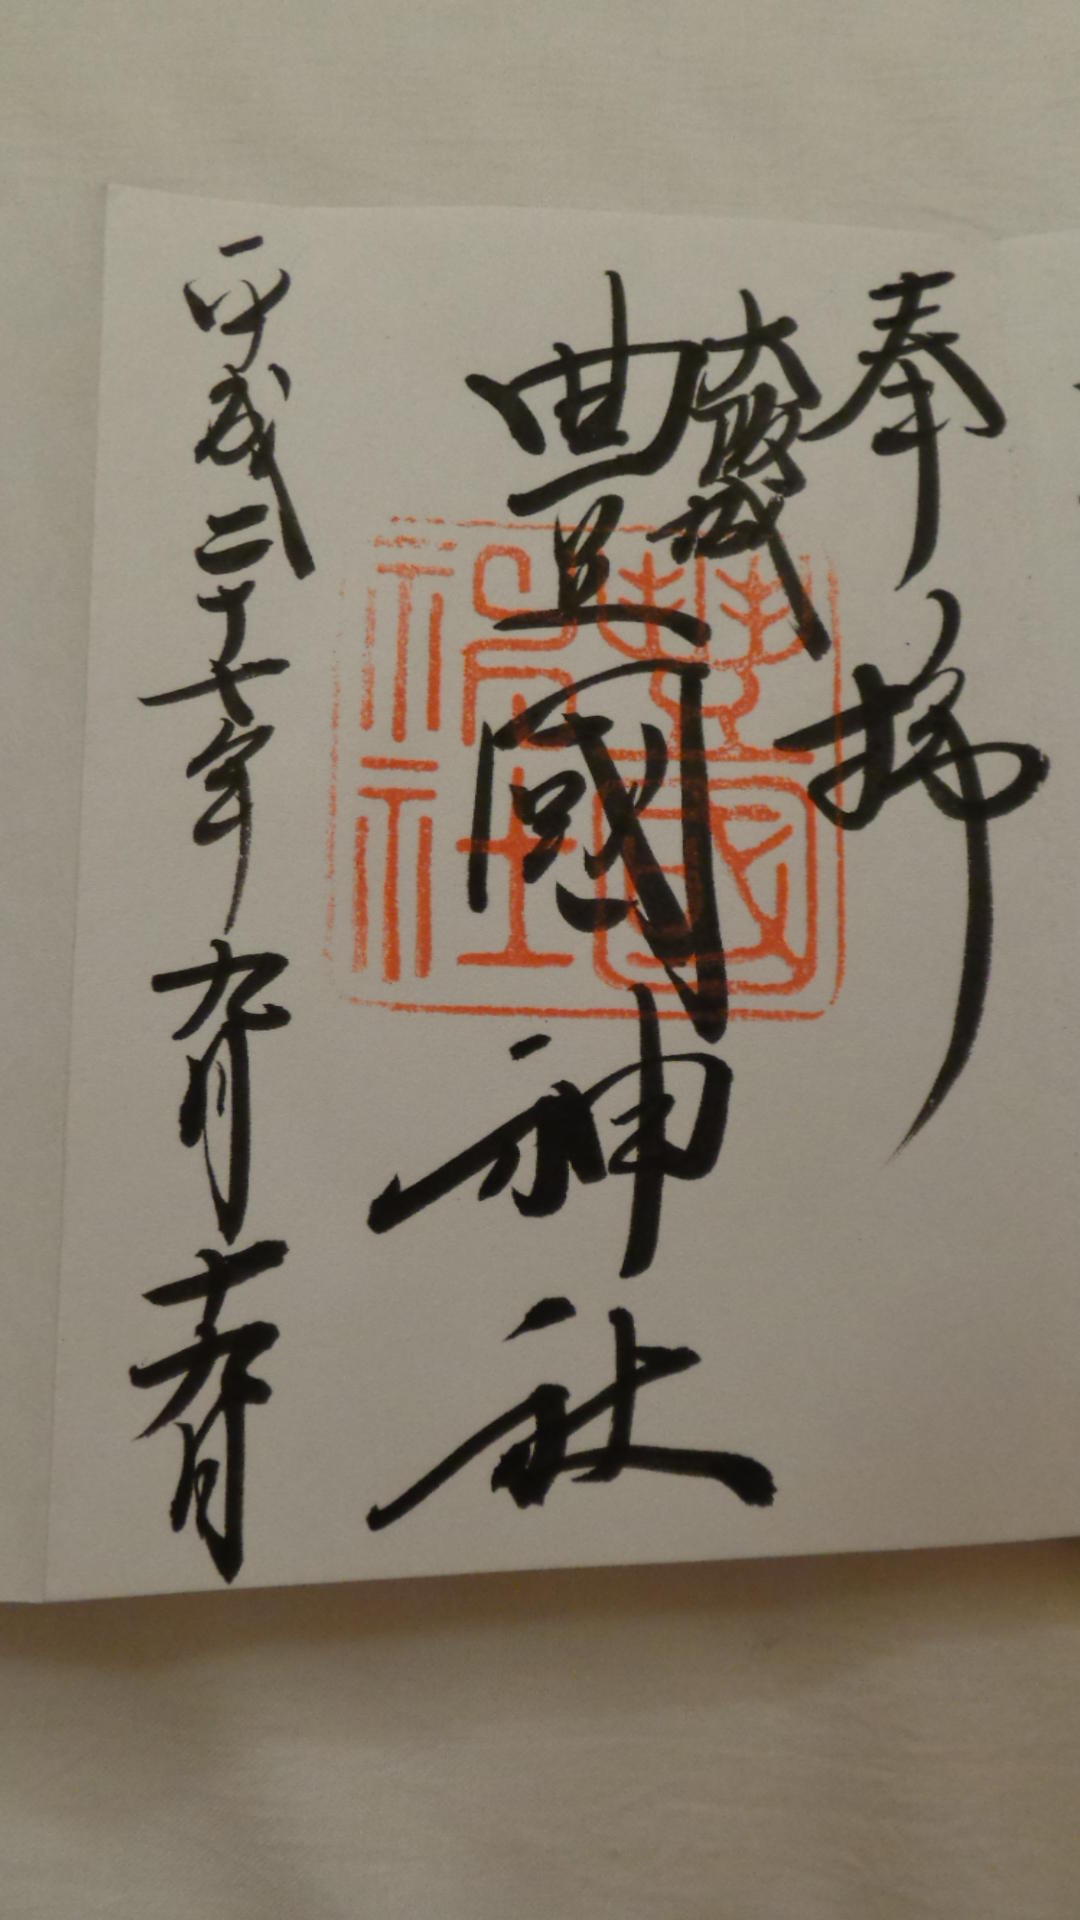 奉拝
大阪城
豊國神社
平成二十七年九月十九日
豊國神社